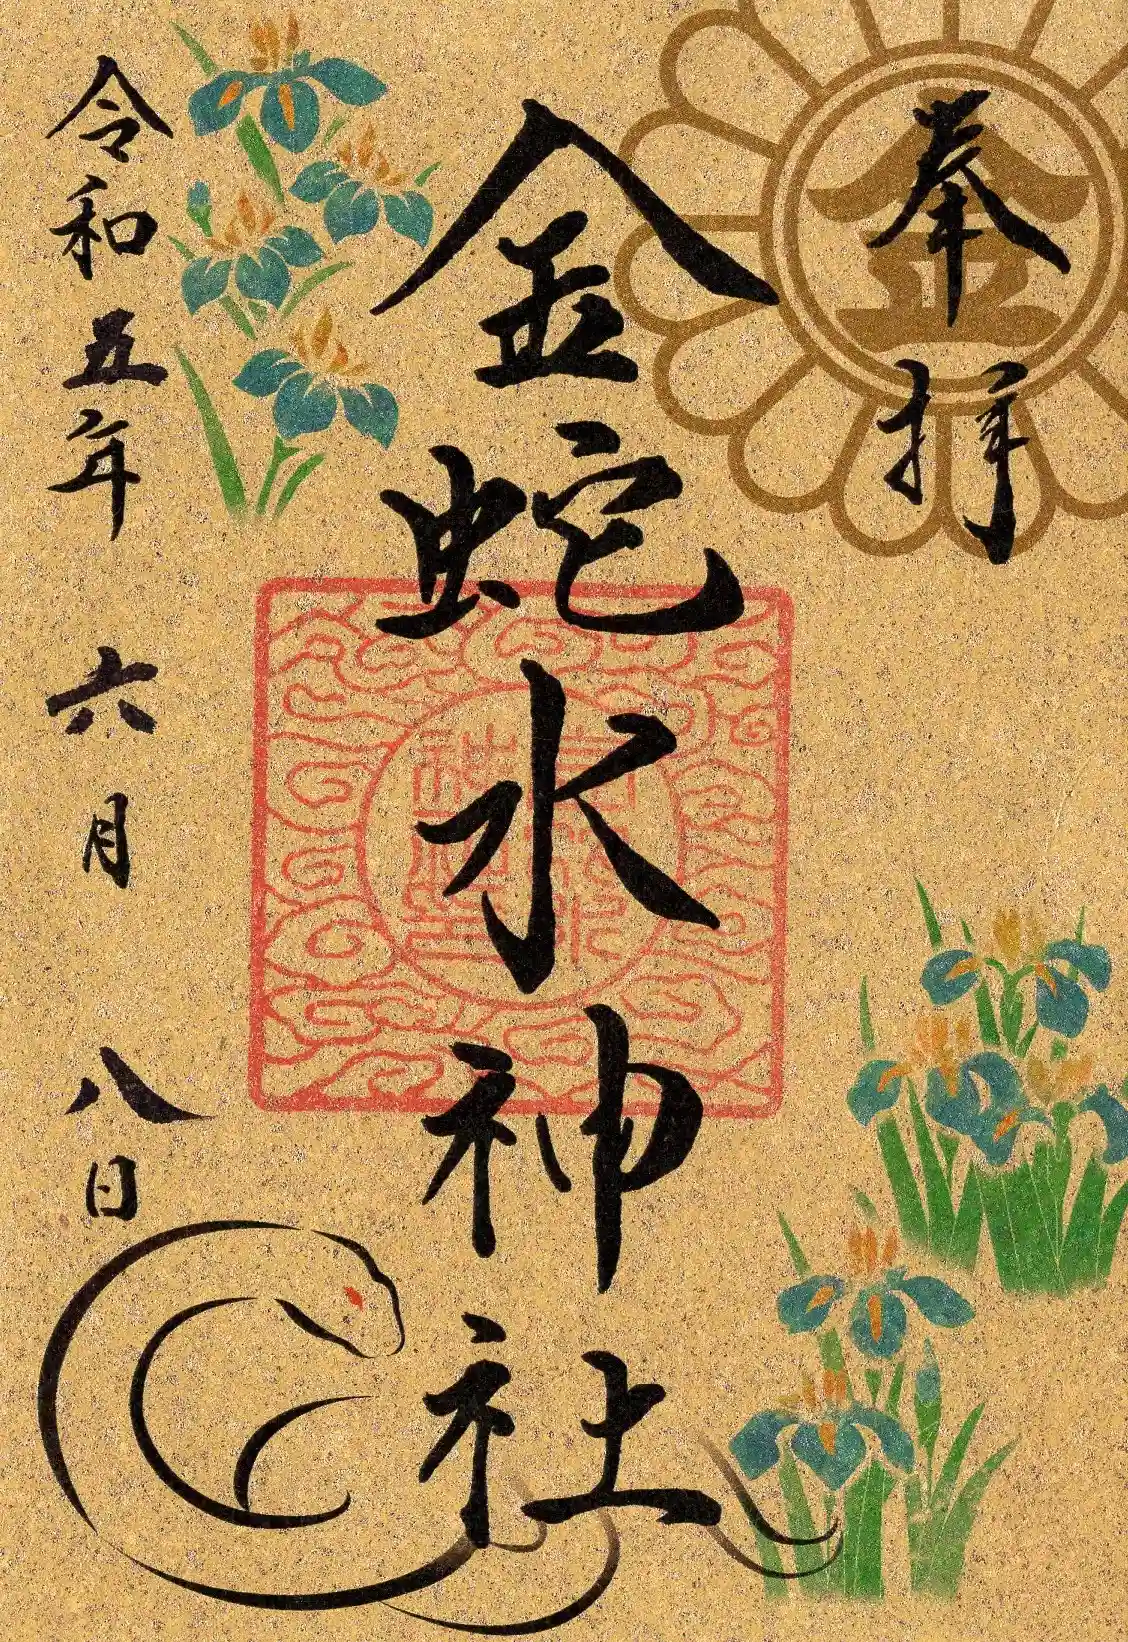 奉拝
金
金蛇水神社
令和五年六月八日